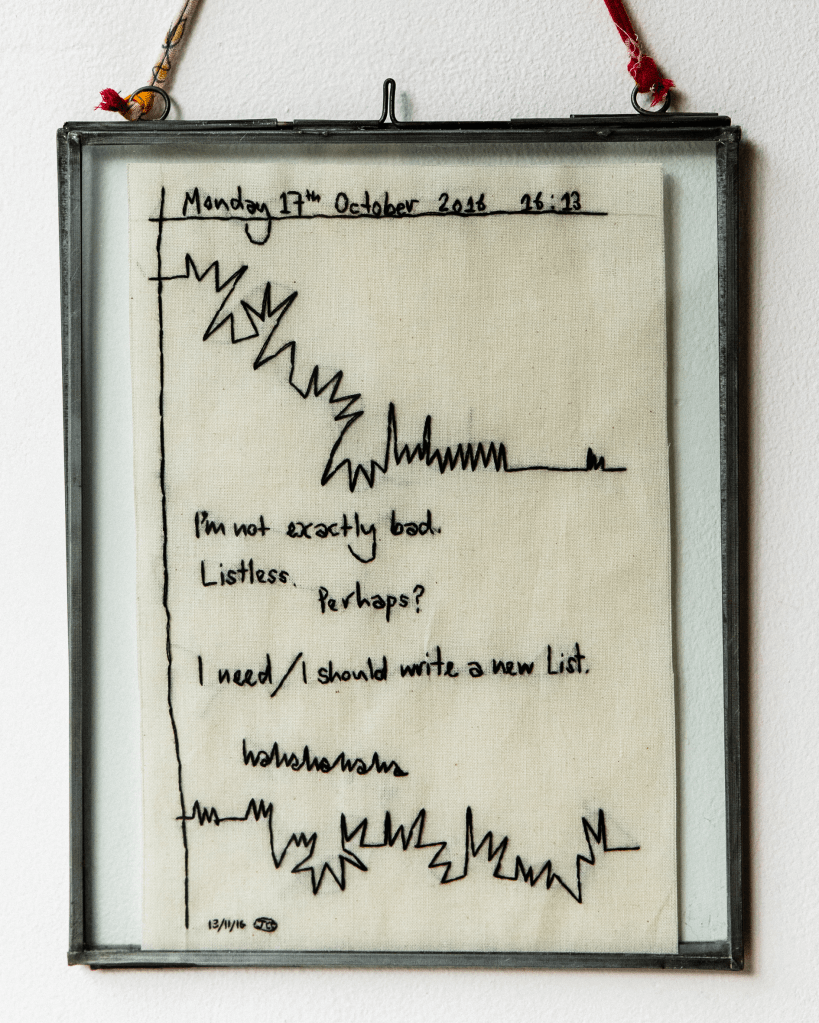 Monday 17th October 2016 16:13
I'm not exactly bad.
Listless.
Perhaps?
I need/I should write a new List.
hahahahaha
13/11/16